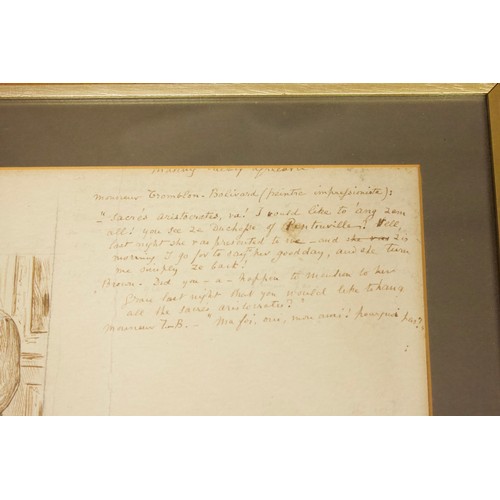 Monsieur Tromblon-Bolivard (peintre impressioniste):
"Sacrés aristocrates, va! I would like to 'ang zem
all! you see ze Duchess of Pentonville? Well,
last night she was presented to me - and she was zis
morning I go for to say her good day, and she turn
me simply ze back!
Brown. Did you - a - happen to mention to her
Grace last night that you would like to hang
all the sacrés aristocrates?"
Monsieur T.B. - "Ma foi, oui, mon ami! pourquoi pas?"